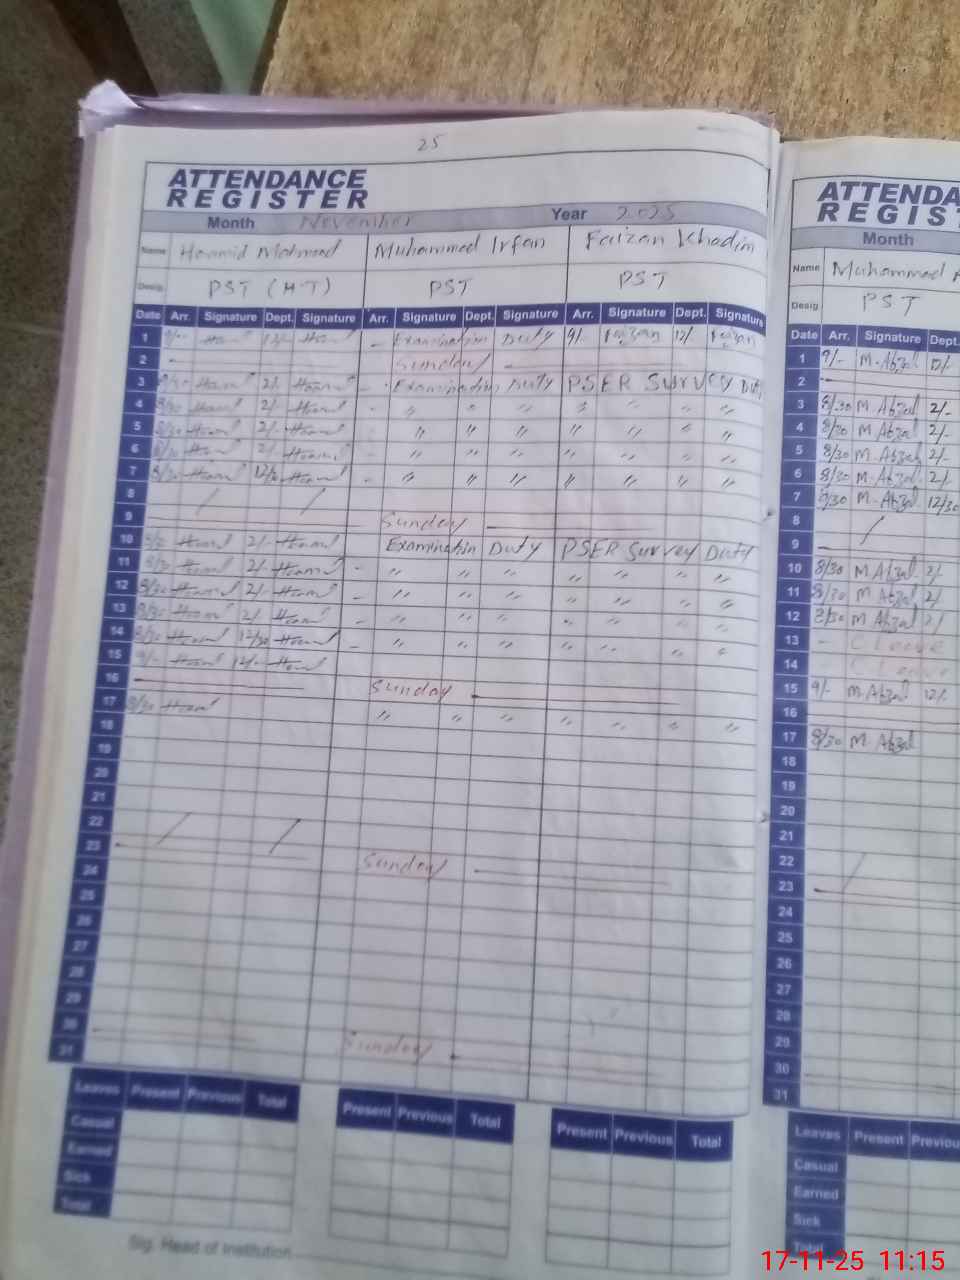 25
ATTENDANCE
REGISTER
Month November Year 2025
Name Hammid Mahmood Muhammad Irfan Faizan Khadim
Desig. PST (HT) PST PST
Date Arr. Signature Dept. Signature Arr. Signature Dept. Signature Arr. Signature Dept. Signature
1 9/- 12/- Examination Duty 9/- Faizan 12/- Faizan
2 Sunday
3 8/30 2/- Examination Duty PSER Survey Duty
4 8/30 2/- - " " " " " " "
5 8/30 2/- - " " " " " " "
6 8/30 2/- - " " " " " " "
7 8/30 12/30 - " " " " " " "
8 / /
9 Sunday
10 8/30 2/- Examination Duty PSER Survey Duty
11 8/30 2/- - " " " " " " "
12 8/30 2/- - " " " " " " "
13 8/30 2/- - " " " " " " "
14 8/30 12/30 - " " " " " " "
15 9/- 12/-
16 Sunday
17 8/30 " " " " " " "
18
19
20
21
22 / /
23 Sunday
24
25
26
27
28
29
30 Sunday
31
Leaves Present Previous Total Present Previous Total Present Previous Total
Casual
Earned
Sick
Total
Sig. Head of Institution
ATTENDA
REGIST
Month
Name Muhammad A
Desig PST
Date Arr. Signature Dept.
1 9/- M.Afzal 12/-
2
3 8/30 M.Afzal 2/-
4 8/30 M.Afzal 2/-
5 8/30 M.Afzal 2/-
6 8/30 M.Afzal 2/-
7 8/30 M.Afzal 12/30
8 /
9
10 8/30 M.Afzal 2/-
11 8/30 M.Afzal 2/-
12 8/30 M.Afzal 2/-
13 - C Leave
14 C Leave
15 9/- M.Afzal 12/-
16
17 8/30 M.Afzal
18
19
20
21
22
23
24
25
26
27
28
29
30
31
Leaves Present Previou
Casual
Earned
Sick
Total
17-11-25 11:15